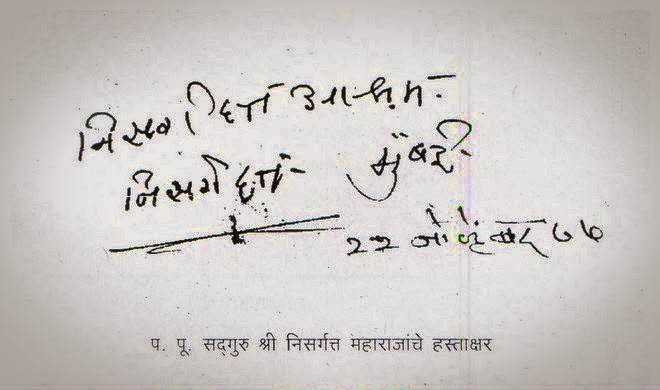 निसर्गदत्त आश्रम.
निसर्गदत्त मुंबई
२२ नोव्हेंबर ७७
प. पू. सद्‌गुरु श्री निसर्गत्त महाराजांचे हस्ताक्षर